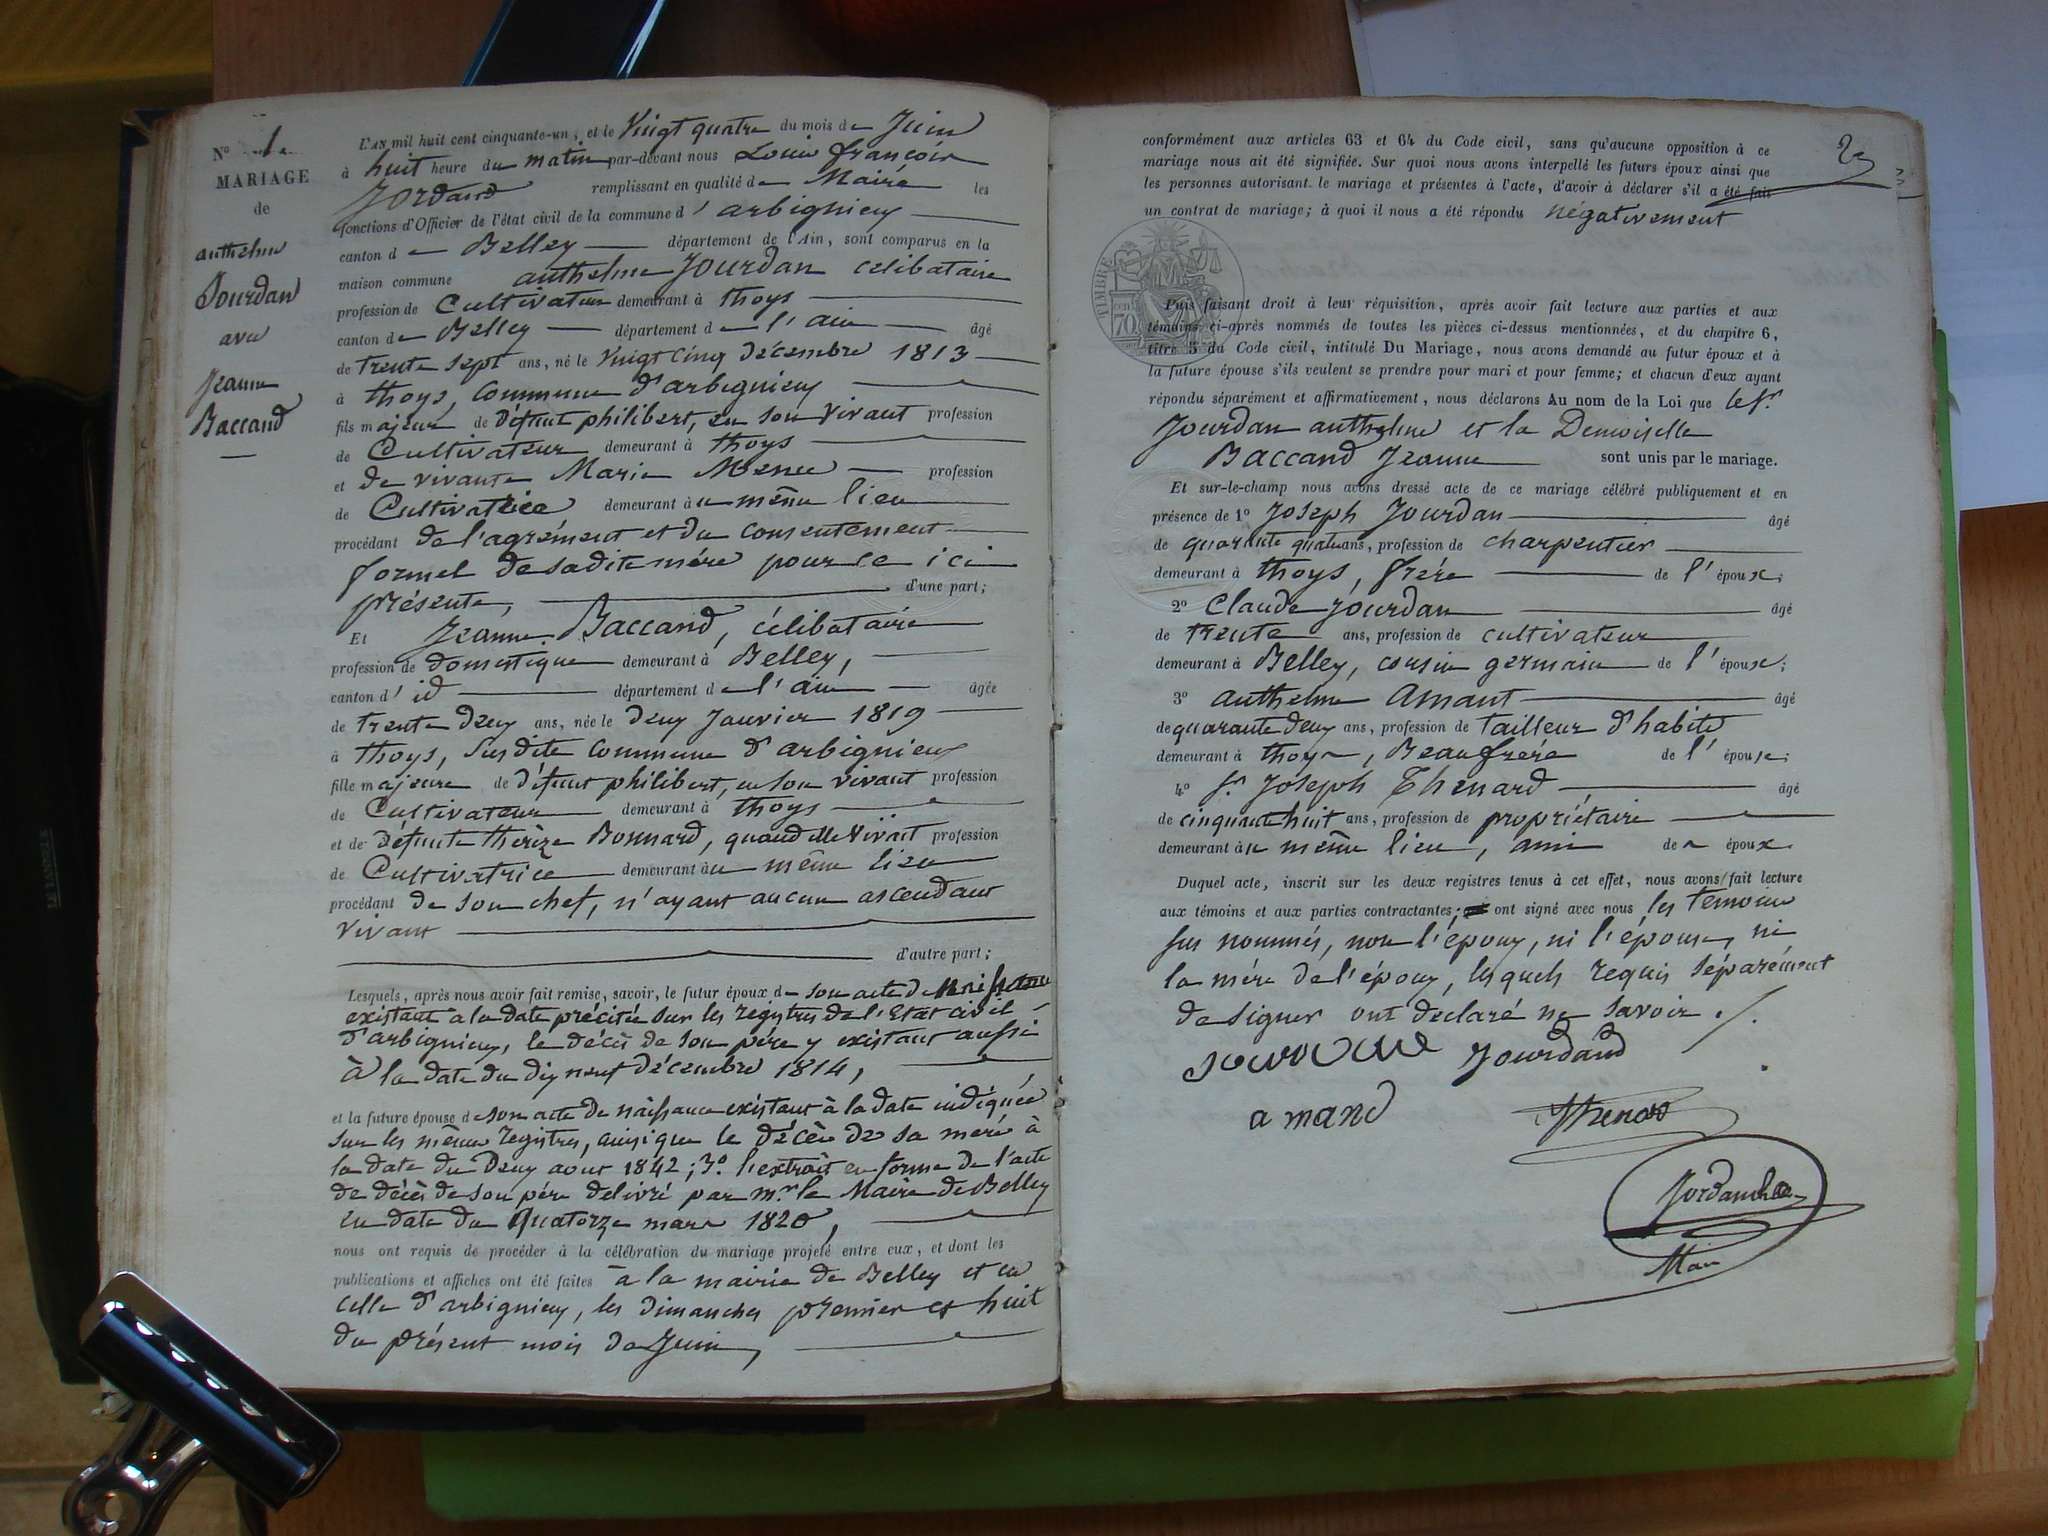 N° 1
MARIAGE
de
anthelme
Jourdan
avec
Jeanne
Baccand
L'AN mil huit cent cinquante-un, et le Vingt quatre du mois de Juin
à huit heure du matin par-devant nous Louis françois
Jordand remplissant en qualité de Maire les
fonctions d'Officier de l'état civil de la commune d'arbignieu
canton de Belley département de l'Ain, sont comparus en la
maison commune anthelme Jourdan célibataire
profession de Cultivateur demeurant à thoys
canton de Belley département de l'ain âgé
de trente sept ans, né le vingt cinq décembre 1813
à thoys, commune d'arbignieu
fils majeur de défunt philibert, en son vivant profession
de Cultivateur demeurant à thoys
et de vivante Marie profession
de Cultivatrice demeurant au même lieu
procédant de l'agrément et du consentement
formel de sadite mère pour ce ici
présente, d'une part;
Et Jeanne Baccand, célibataire
profession de domestique demeurant à Belley,
canton d'id département de l'ain âgée
de trente deux ans, née le deux Janvier 1819
à thoys, susdite commune d'arbignieu
fille majeure de défunt philibert, en son vivant profession
de Cultivateur demeurant à thoys
et de défunte thérèze Bonnard, quand elle vivait profession
de Cultivatrice demeurant au même lieu
procédant de son chef, n'ayant aucun ascendant
vivant
d'autre part;
Lesquels, après nous avoir fait remise, savoir, le futur époux de son acte de naissance
existant à la date précitée sur les registres de l'Etat civil
d'arbignieu, le décès de son père y existant aussi
à la date du dix neuf décembre 1814,
et la future épouse de son acte de naissance existant à la date indiquée
sur les même registres, ainsi que le décès de sa mère à
la date du deux aout 1842; 3° l'extrait en forme de l'acte
de décès de son père delivré par mr. le Maire de Belley
en date du Quatorze mars 1820,
nous ont requis de procéder à la célébration du mariage projeté entre eux, et dont les
publications et affiches ont été faites à la mairie de Belley et en
celle d'arbignieu, les dimanches premier et huit
du présent mois de Juin,
23
conformément aux articles 63 et 64 du Code civil, sans qu'aucune opposition à ce
mariage nous ait été signifiée. Sur quoi nous avons interpellé les futurs époux ainsi que
les personnes autorisant le mariage et présentes à l'acte, d'avoir à déclarer s'il a été fait
un contrat de mariage; à quoi il nous a été répondu négativement
TIMBRE
70
Puis faisant droit à leur réquisition, après avoir fait lecture aux parties et aux
témoins ci-après nommés de toutes les pièces ci-dessus mentionnées, et du chapitre 6,
titre 5 du Code civil, intitulé Du Mariage, nous avons demandé au futur époux et à
la future épouse s'ils veulent se prendre pour mari et pour femme; et chacun d'eux ayant
répondu séparément et affirmativement, nous déclarons Au nom de la Loi que le sr.
Jourdan anthelme et la Demoiselle
Baccand Jeanne sont unis par le mariage.
Et sur-le-champ nous avons dressé acte de ce mariage célébré publiquement et en
présence de 1° Joseph Jourdan âgé
de quarante quatre ans, profession de charpentier
demeurant à thoys, frère de l'époux;
2° Claude Jourdan âgé
de trente ans, profession de cultivateur
demeurant à Belley, cousin germain de l'époux;
3° anthelme Amant âgé
de quarante deux ans, profession de tailleur d'habits
demeurant à thoys, Beaufrère de l'épouse;
4° sr. Joseph Thenard, âgé
de cinquante huit ans, profession de propriétaire
demeurant au même lieu, ami des époux.
Duquel acte, inscrit sur les deux registres tenus à cet effet, nous avons fait lecture
aux témoins et aux parties contractantes; ont signé avec nous les témoins
sus nommés, non l'époux, ni l'épouse, ni
la mère de l'époux, lesquels requis séparément
de signer ont déclaré ne savoir ./.
Jourdand
amand
Maire